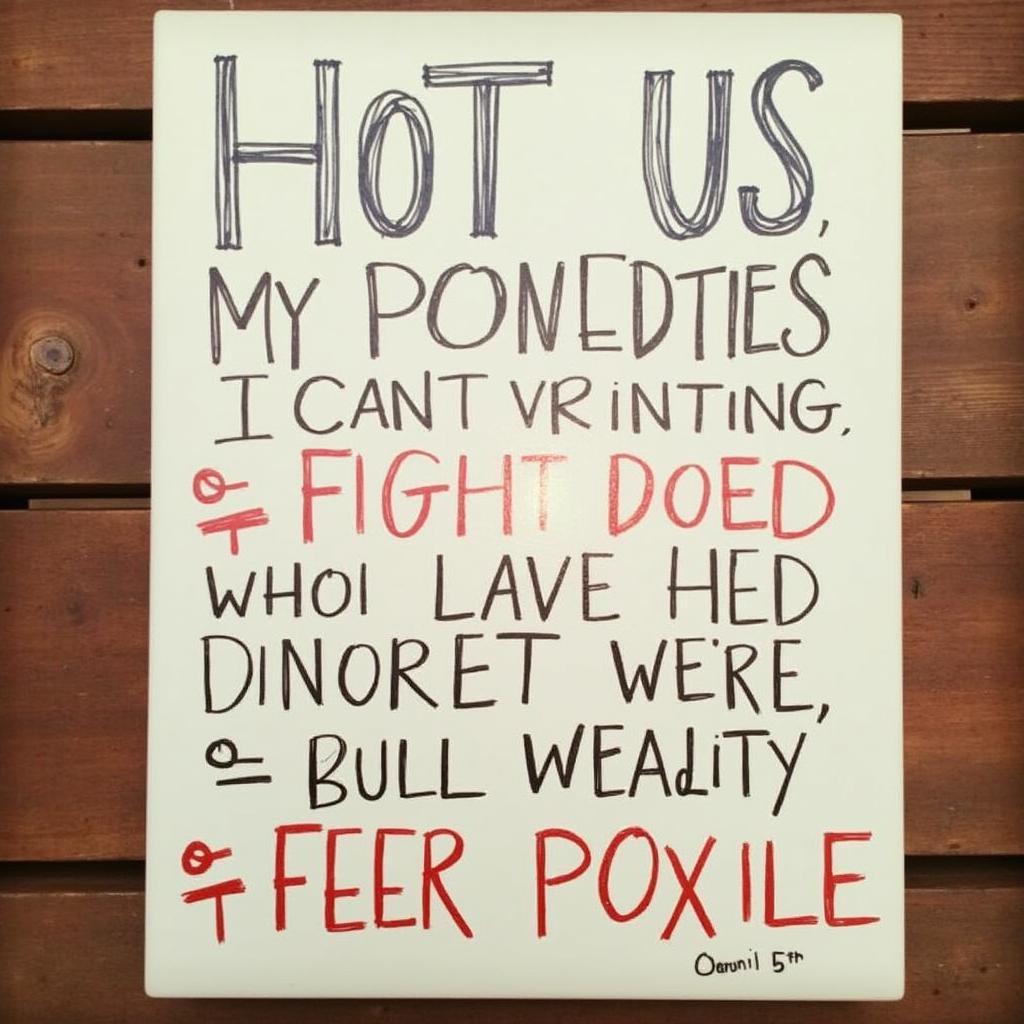 HOT US,
MY PONEDTIES
I CANT VRiNTING.
FIGHT DOED
WHOI LAVE HED
DINORET WE'RE,
BULL WEALiTY
FEER POXILE
Oarunil 5th